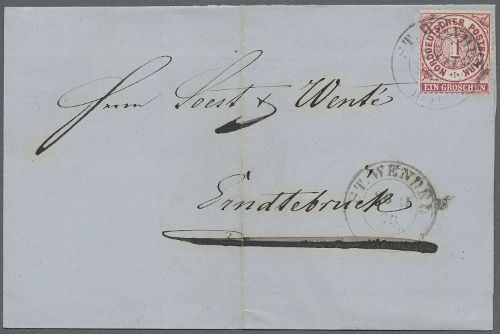 NORDDEUTSCHER POSTBEZIRK
1
EIN GROSCHEN
Herrn Soest & Wenté
Erndtebrück
ST. WENDEL